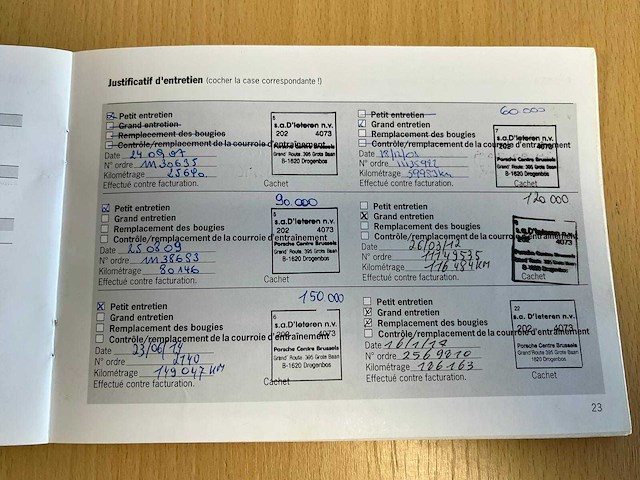 Justificatif d'entretien (cocher la case correspondante !)
Petit entretien
Grand entretien
Remplacement des bougies
Contrôle/remplacement de la courroie d'entraînement
Date 24 09 07
N° ordre 11130635
Kilométrage
Effectué contre facturation.
Cachet
s.a.D'Ieteren n.v.
202 4073
Porsche Centre Brussels
Grand' Route 395 Grote Baan
B-1620 Drogenbos
60.000
Petit entretien
Grand entretien
Remplacement des bougies
Contrôle/remplacement de la courroie d'entraînement
Date
N° ordre
Kilométrage 59983km
Effectué contre facturation.
Cachet
7
s.a.D'Ieteren n.v.
202 4073
Porsche Centre Brussels
Grand' Route 395 Grote Baan
B-1620 Drogenbos
90.000
Petit entretien
Grand entretien
Remplacement des bougies
Contrôle/remplacement de la courroie d'entraînement
Date 25 08 09
N° ordre 11138683
Kilométrage 80146
Effectué contre facturation.
Cachet
s.a.D'Ieteren n.v.
202 4073
Porsche Centre Brussels
Grand' Route 395 Grote Baan
B-1620 Drogenbos
120 000
Petit entretien
Grand entretien
Remplacement des bougies
Contrôle/remplacement de la courroie d'entraînement
Date 26/03/12
N° ordre 11149535
Kilométrage 116 484 KM
Effectué contre facturation.
Cachet
s.a.D'Ieteren n.v.
4073
Porsche Centre Brussels
B-1620 Drogenbos
150 000
Petit entretien
Grand entretien
Remplacement des bougies
Contrôle/remplacement de la courroie d'entraînement
Date 23/06/14
N° ordre 2140
Kilométrage 149 047 KM
Effectué contre facturation.
Cachet
s.a.D'Ieteren n.v.
202 4073
Porsche Centre Brussels
Grand' Route 395 Grote Baan
B-1620 Drogenbos
Petit entretien
Grand entretien
Remplacement des bougies
Contrôle/remplacement de la courroie d'entraînement
Date 16/1/17
N° ordre 2569810
Kilométrage
Effectué contre facturation.
Cachet
22
s.a.D'Ieteren n.v.
202 4073
Porsche Centre Brussels
Grand' Route 395 Grote Baan
1620 Drogenbos
23